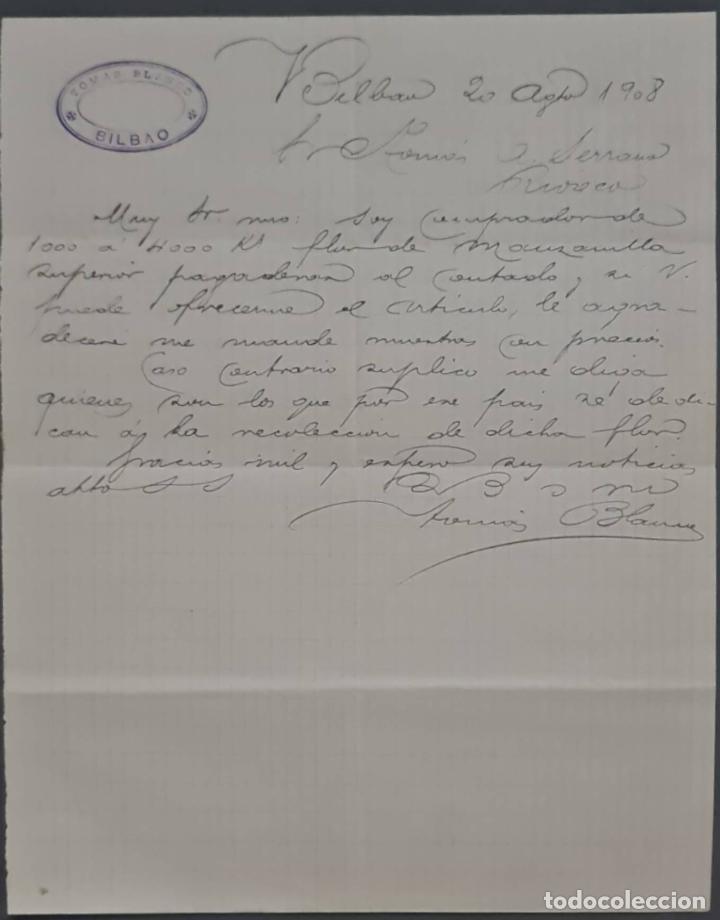 TOMAS BLANCO
BILBAO
Bilbao 20 Agto 1908
Sr Tomás A. Serrano
Muy Sr. mio: Soy comprador de
1000 á 4000 Ks flor de Manzanilla
superior pagaderas al contado, y si V.
puede ofrecerme el artículo, le agra-
deceré me mande muestras con precios.
Caso contrario suplico me diga
quienes son los que por ese pais se dedi-
can á la recolección de dicha flor.
Gracias mil y espero sus noticias
atto S S Q B S M
Tomás Blanco
todocoleccion
todocoleccion.net